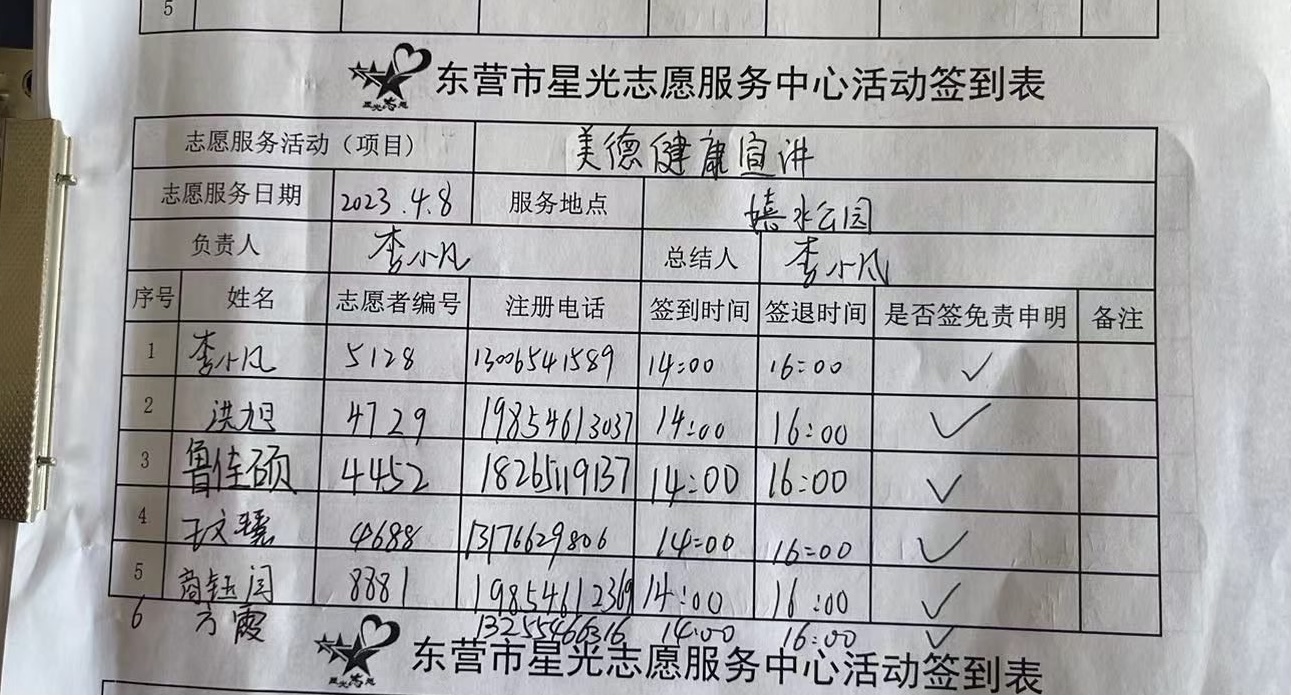 5
东营市星光志愿服务中心活动签到表
志愿服务活动（项目） 美德健康宣讲
志愿服务日期 2023.4.8 服务地点 嬉水公园
负责人 李小凡 总结人 李小凡
序号 姓名 志愿者编号 注册电话 签到时间 签退时间 是否签免责申明 备注
1 李小凡 5128 13006541589 14:00 16:00 ✓
2 洪旭 4729 19854613037 14:00 16:00 ✓
3 鲁佳硕 4452 18265119137 14:00 16:00 ✓
4 4688 13176629806 14:00 16:00 ✓
5 商钰闫 8881 19854612369 14:00 16:00 ✓
6 方霞 13255466316 14:00 16:00 ✓
星光志愿
东营市星光志愿服务中心活动签到表